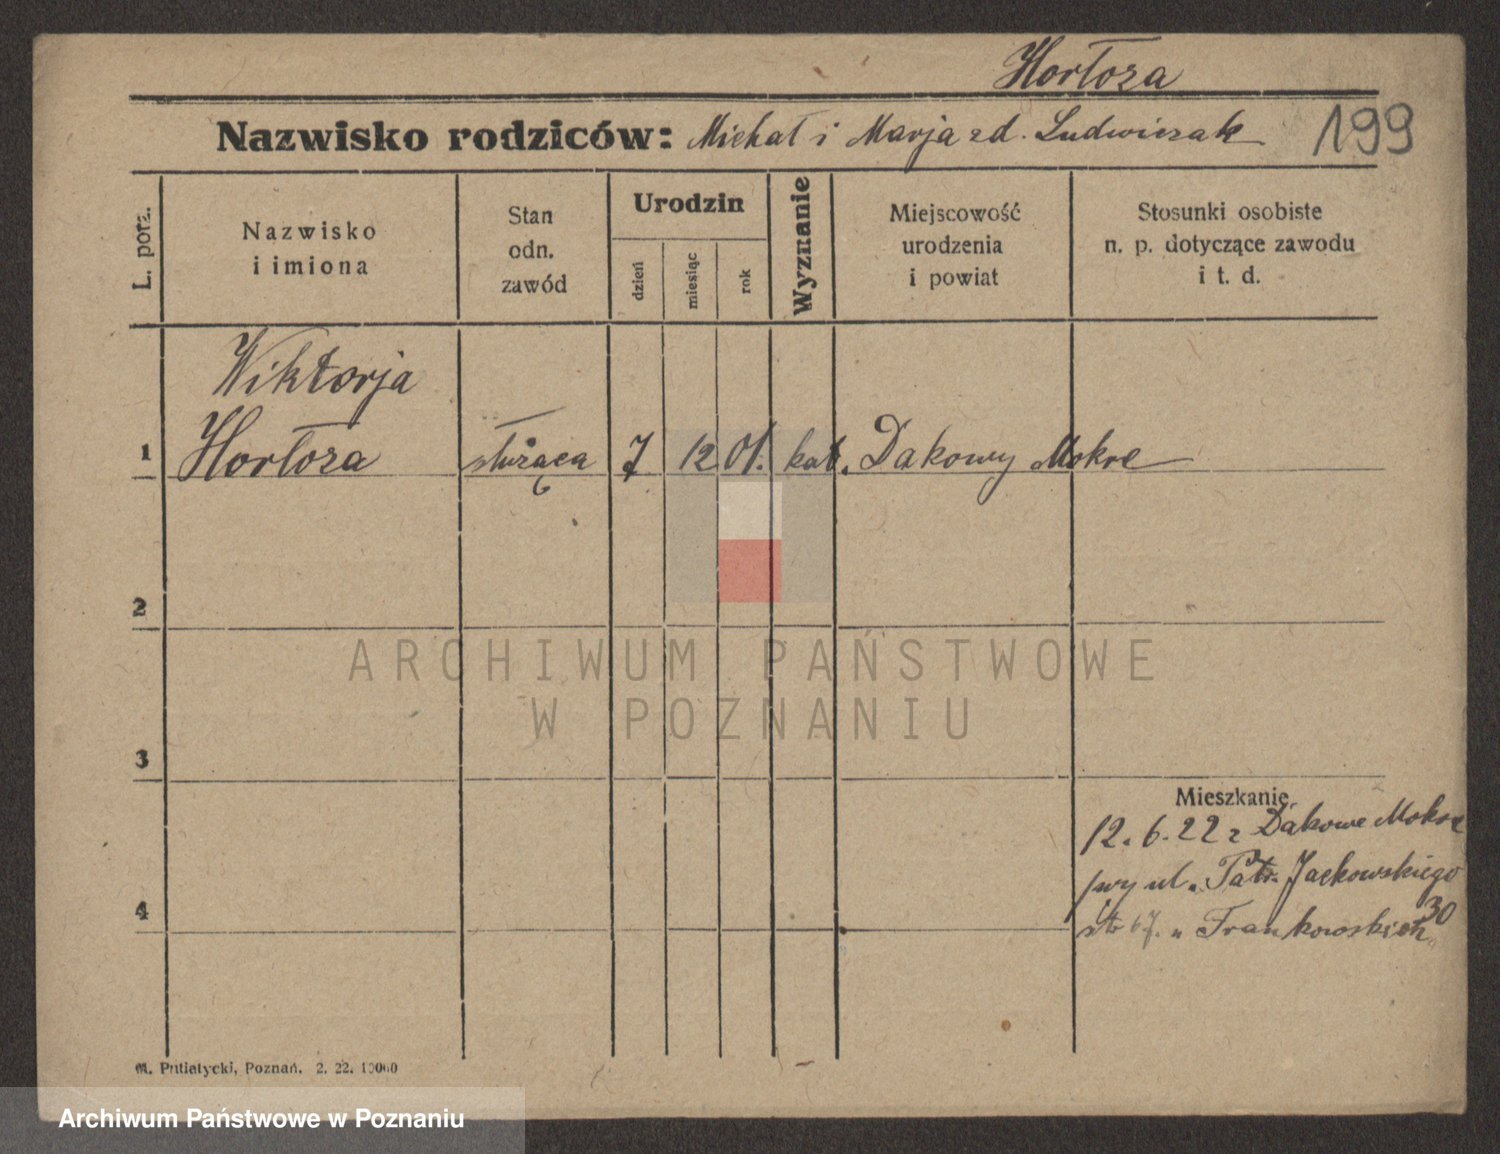 Hortoza
Nazwisko rodziców: Michał i Marja zd. Ludwiczak
199
L. porz.
Nazwisko
i imiona
Stan
odn.
zawód
Urodzin
dzień
miesiąc
rok
Wyznanie
Miejscowość
urodzenia
i powiat
Stosunki osobiste
n. p. dotyczące zawodu
i t. d.
Wiktorja
1 Hortoza służąca 7 12 01. kat. Dakowy Mokre
2
ARCHIWUM PAŃSTWOWE
W POZNANIU
3
Mieszkanie
12. 6. 22 z Dakowe Mokre
ul. Patr. Jackowskiego
30
4
67. u Frankowskich
M. Putiatycki, Poznań. 2. 22. 10000
Archiwum Państwowe w Poznaniu